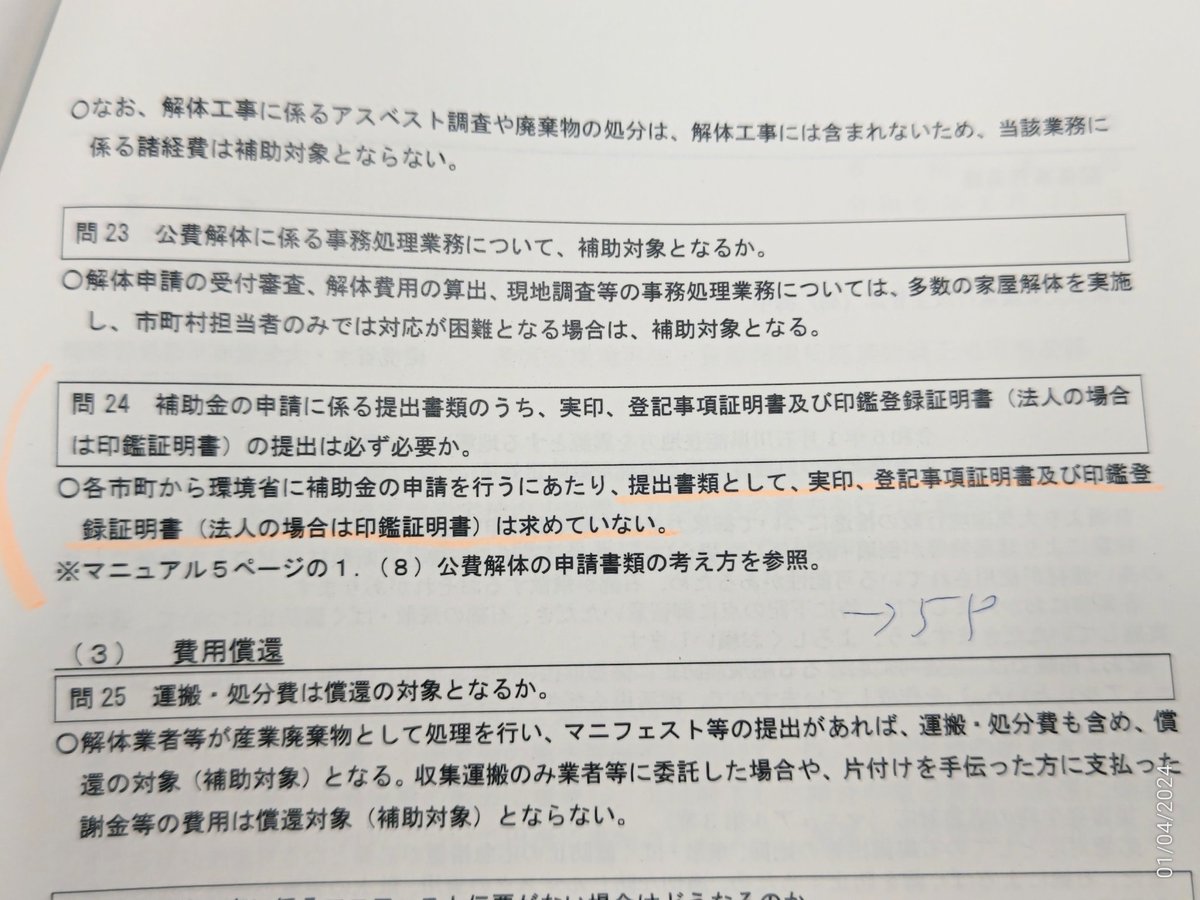 ○なお、解体工事に係るアスベスト調査や廃棄物の処分は、解体工事には含まれないため、当該業務に
係る諸経費は補助対象とならない。
問23 公費解体に係る事務処理業務について、補助対象となるか。
○解体申請の受付審査、解体費用の算出、現地調査等の事務処理業務については、多数の家屋解体を実施
し、市町村担当者のみでは対応が困難となる場合は、補助対象となる。
問24 補助金の申請に係る提出書類のうち、実印、登記事項証明書及び印鑑登録証明書(法人の場合
は印鑑証明書)の提出は必ず必要か。
○各市町から環境省に補助金の申請を行うにあたり、提出書類として、実印、登記事項証明書及び印鑑登
録証明書(法人の場合は印鑑証明書)は求めていない。
※マニュアル5ページの1.(8)公費解体の申請書類の考え方を参照。
→5P
(3) 費用償還
問25 運搬・処分費は償還の対象となるか。
○解体業者等が産業廃棄物として処理を行い、マニフェスト等の提出があれば、運搬・処分費も含め、償
還の対象(補助対象)となる。収集運搬のみ業者等に委託した場合や、片付けを手伝った方に支払った
謝金等の費用は償還対象(補助対象)とならない。
01/04/2024